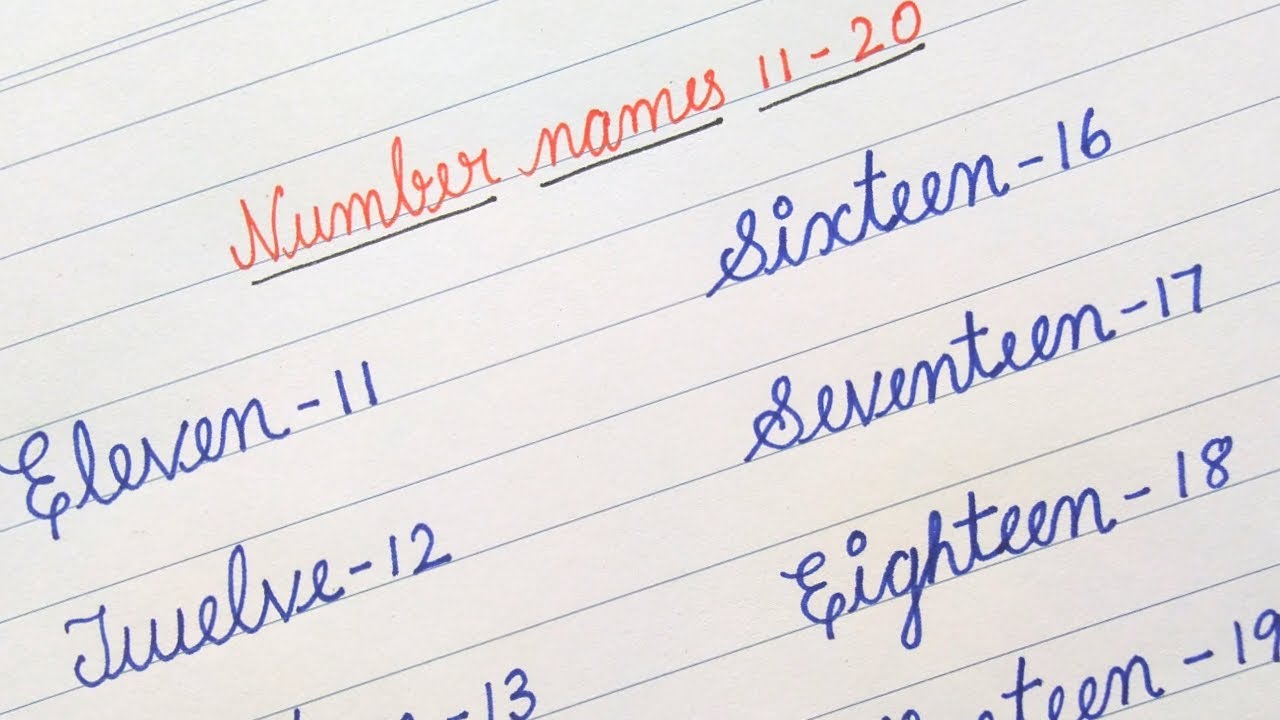 Number names 11-20
Eleven-11
Twelve-12
-13
Sixteen-16
Seventeen-17
Eighteen-18
-19